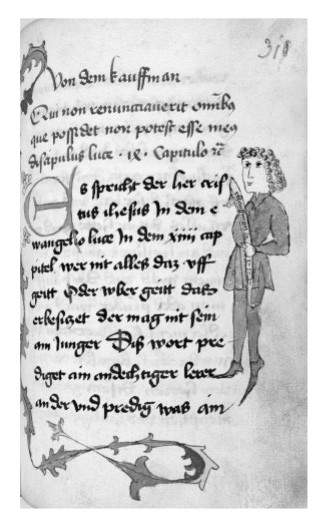 318
Von dem kauffman
Qui non renunciaverit omnibꝫ
que possidet non potest esse meꝫ
discipulus luce · Capitulo
Es spricht der her cris
tus ihesus In dem e
wangelio luce In dem xiiii cap
pitel wer nit alles daz vff
geitt Oder vber geitt daß
er besiczet der mag nit sein
am Junger Diß wort pre
diget ain andechtiger lerer
an der vnd predig was ain